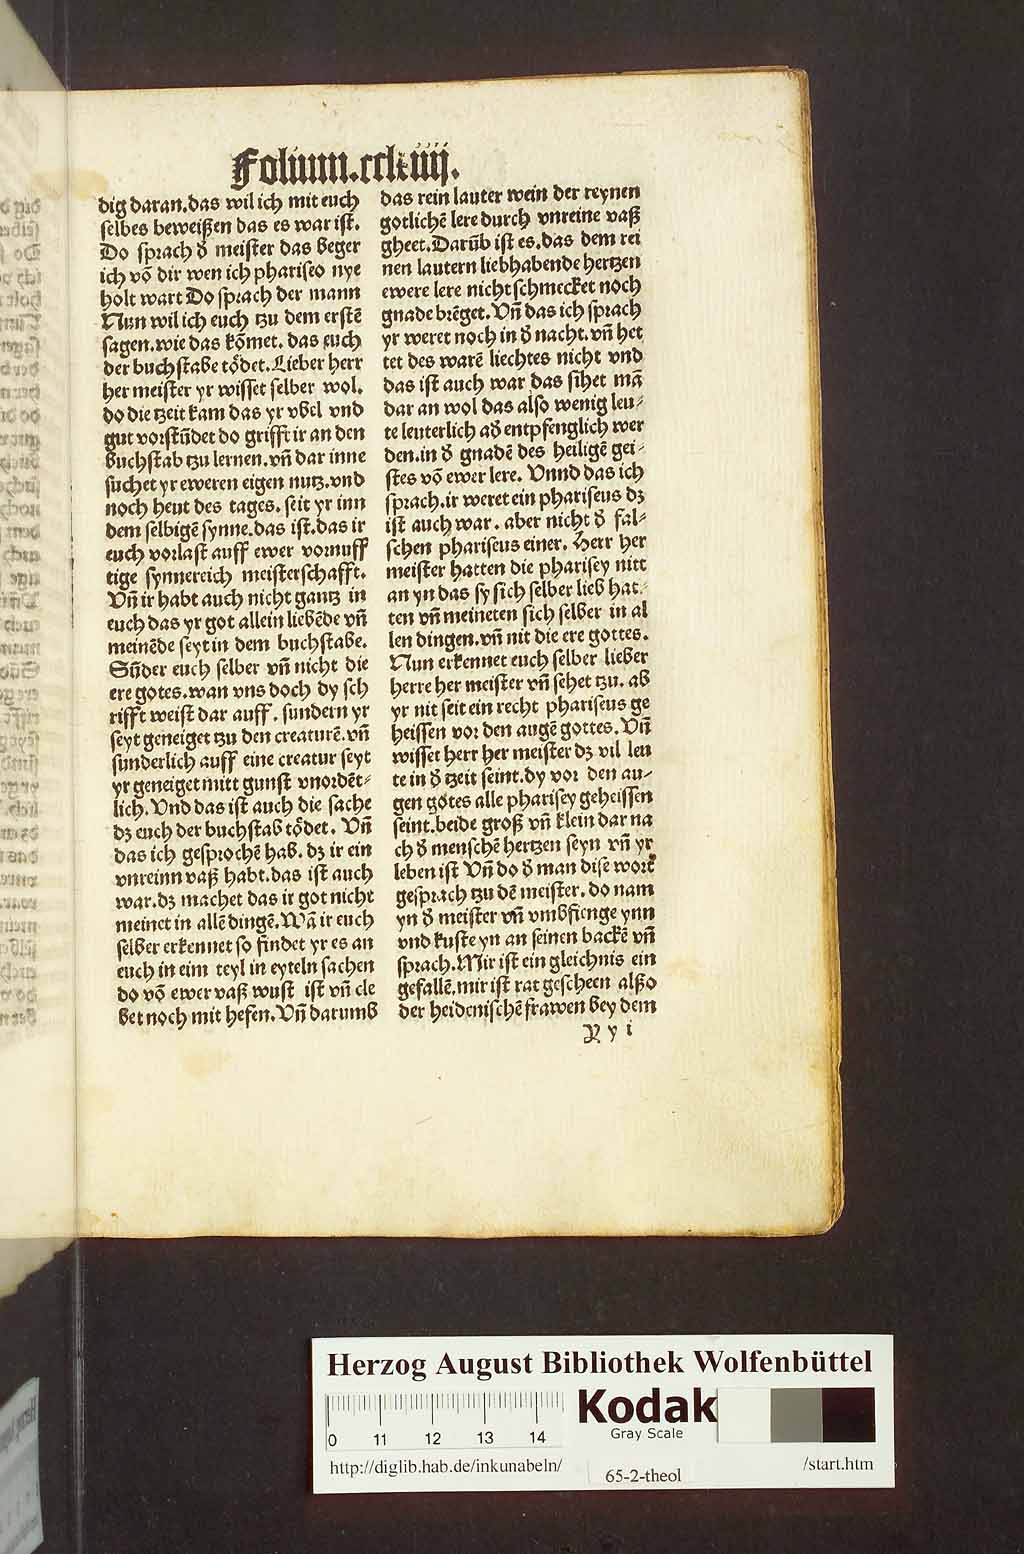 Folium.cclxiiij.
dig daran.das wil ich mit euch
selbes beweißen das es war ist.
Do sprach d̕ meister das beger
ich võ dir wen ich phariseo nye
holt wart Do sprach der mann
Nun wil ich euch tzu dem erstẽ
sagen.wie das kõmet. das euch
der buchstabe tödet.Lieber herr
her meister yr wisset selber wol.
do die tzeit kam das yr vbel vnd
gut vorstũdet do grifft ir an den
buchstab tzu lernen.vñ dar inne
suchet yr eweren eigen nutz.vnd
noch heut des tages. seit yr inn
dem selbigẽ synne.das ist.das ir
euch vorlast auff ewer vornuff
tige synnereich meisterschafft.
Vñ ir habt auch nicht gantz in
euch das yr got allein liebẽde vñ
meinẽde seyt in dem buchstabe.
Sũder euch selber vñ nicht die
ere gotes.wan vns doch dy sch
rifft weist dar auff. sundern yr
seyt geneiget tzu den creaturẽ.vñ
sunderlich auff eine creatur seyt
yr geneiget mitt gunst vnordẽt⸗
lich. Vnd das ist auch die sache
dz euch der buchstab tödet. Vñ
das ich gesprochẽ hab. dz ir ein
vnreinn vaß habt.das ist auch
war.dz machet das ir got nicht
meinet in allẽ dingẽ.Wã ir euch
selber erkennet so findet yr es an
euch in eim teyl in eyteln sachen
do võ ewer vaß wust ist vñ cle
bet noch mit hefen.Vñ darumb
das rein lauter wein der reynen
gotlichẽ lere durch vnreine vaß
gheet.Darũb ist es.das dem rei
nen lautern liebhabende hertzen
ewere lere nicht schmecket noch
gnade brẽget. Vñ das ich sprach
yr weret noch in d̕ nacht.vñ het
tet des warẽ liechtes nicht vnd
das ist auch war das sihet mã
dar an wol das also wenig leu⸗
te leuterlich ad̕ entpfenglich wer
den.in d̕ gnadẽ des heiligẽ gei⸗
stes võ ewer lere. Vnnd das ich
sprach.ir weret ein phariseus dz
ist auch war. aber nicht d̕ fal⸗
schen phariseus einer. Herr her
meister hatten die pharisey nitt
an yn das sy sich selber lieb hat⸗
ten vñ meineten sich selber in al
len dingen.vñ nit die ere gottes.
Nun erkennet euch selber lieber
herre her meister vñ sehet tzu. ab
yr nit seit ein recht phariseus ge
heissen vor den augẽ gottes. Vñ
wisset herr her meister dz vil leu
te in d̕ tzeit seint.dy vor den au⸗
gen gotes alle pharisey geheissen
seint.beide groß vñ klein dar na
ch d̕ menschẽ hertzen seyn vñ yr
leben ist Vñ do d̕ man dise wort
gesprach tzu dẽ meister. do nam
yn d̕ meister vñ vmbfienge ynn
vnd kuste yn an seinen backẽ vñ
sprach.Mir ist ein gleichnis ein
gefallẽ.mir ist rat gescheen alßo
der heidenischẽ frawen bey dem
y i
Herzog August Bibliothek Wolfenbüttel
0 11 12 13 14
Kodak
Gray Scale
http://diglib.hab.de/inkunabeln/ 65-2-theol /start.htm